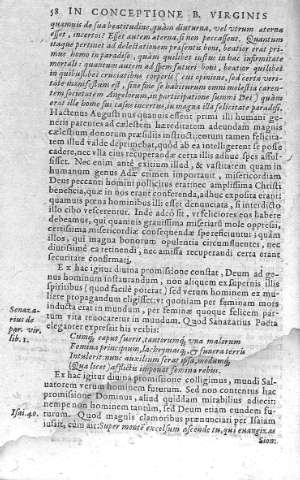 58 IN CONCEPTIONE B. VIRGINIS
quamuis de sua beatitudine, quàm diuturna, vel vtrum aterna
esset, incertos? Esset autem aterna, si non peccassent. Quantum
itaque pertinet ad delectationem præsentis boni, beatior erat pri-
mus homo in paradiso, quàm quilibet iustus in hac infirmitate
mortali: quantum autem ad spem futuri boni, beatior quilibet
in quibuslibet cruciatibus corporis; cui opinione, sed certa veri-
tate manifestum est, sine fine se habiturum omni molestia caren-
tem societatem Angelorum, in participatione summi Dei; quàm
erat ille homo sui casus incertus, in magna illa felicitate paradisi.
Hactenus Augustinus
neris parentes ad cælestem
cælestium donorum præsidiis instructi
tem illud valde deprimebat, quòd ab ea intelligeret se posse
cadere, nec vlla
sisset. Nec enim antè exitium illud, & vastitatem quam in
humanum genus Adæ crimen importauit, misericordiam
Deus peccanti homini pollicitus erat
beneficia, quæ in nos erant conferenda, adhuc exposita erant:
quamuis pœna hominibus illi esset denunciata, si interdicto
illo cibo vescerentur. Inde adeò sit, vt feliciores eos habere
debeamus, qui quamuis grauissima miseria mole oppressi,
certissima misericordiæ consequendæ spe
illos, qui magna bonorum opulentia circumfluentes, nec
diutissimè ea retinendi, nec amissa recuperandi certa erant
securitate confirmati.
Ex hac igitur diuina promissione constat, Deum ad ge-
nus hominum instaurandum, non aliquem ex supernis illis
spiritibus (quod facilè poterat) sed verum hominem ex mu-
liere propagandum eligisse: vt quoniam per feminam mors
inducta erat in mundum, per feminæ quoque felicem par-
tum vita reuocaretur in mundum. Quod Sanazarius Poëta
eleganter expressit his verbis:
Sanaza-
rius de
par. vir.
lib. 1.
Cumq, caput fuerit, tantorumq, vna malorum
Femina principium, lachrymasq, & funera terris
Intulerit: nunc auxilium ferat ipsa, modumq,
(Qua licet) afflictis imponat femina rebus.
Ex hac igitur diuina promissione colligimus, mundi Sal-
uatorem verum hominem futurum. Sed non contentus hac
promissione Dominus, aliud quiddam mirabilius adiecit:
nempe non hominem tantùm, sed Deum etiam eundem fu-
turum. Quod magnis clamoribus prænunciari per Isaiam
iussit, cùm ait: Super montē excelsum ascende tu, qui euangelizas
Isai. 40.
Sion.